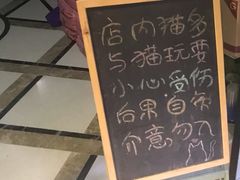 店内猫多
与猫玩耍
小心受伤
后果自负
介意勿入